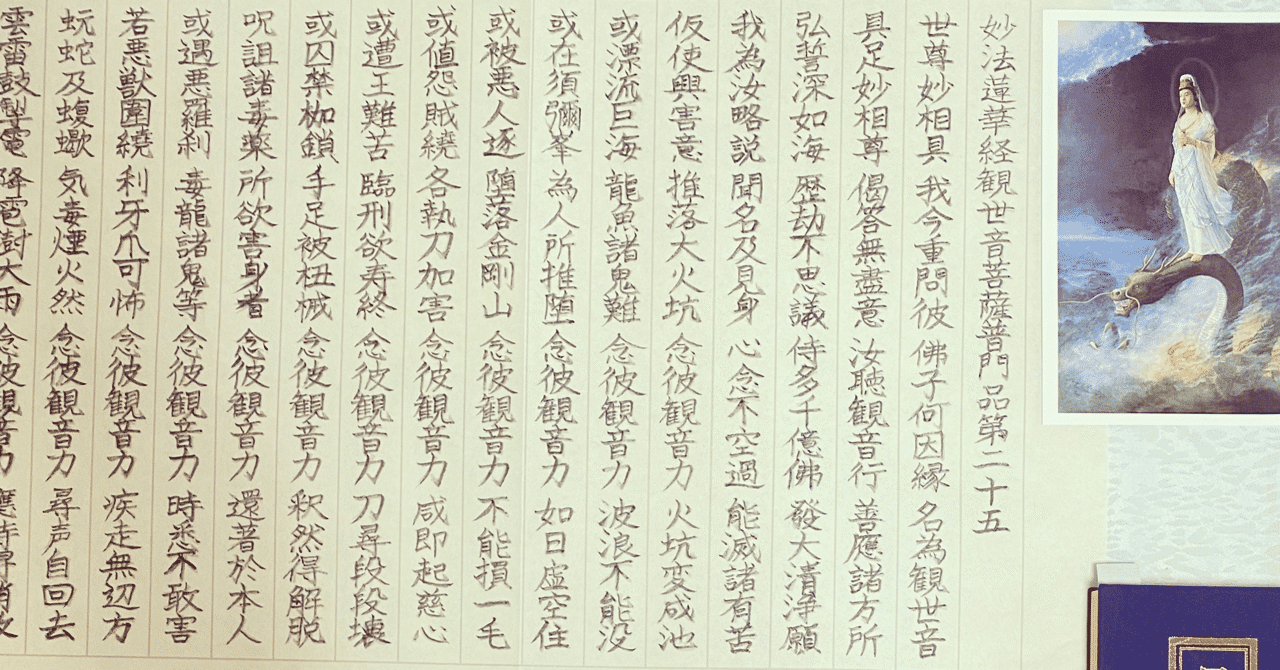 妙法蓮華経観世音菩薩普門品第二十五
世尊妙相具 我今重問彼 佛子何因縁 名為観世音
具足妙相尊 偈答無盡意 汝聴観音行 善應諸方所
弘誓深如海 歴劫不思議 侍多千億佛 發大清浄願
我為汝略説 聞名及見身 心念不空過 能滅諸有苦
仮使興害意 推落大火坑 念彼観音力 火坑変成池
或漂流巨海 龍魚諸鬼難 念彼観音力 波浪不能没
或在須彌峯 為人所推堕 念彼観音力 如日虚空住
或被悪人逐 堕落金剛山 念彼観音力 不能損一毛
或値怨賊繞 各執刀加害 念彼観音力 咸即起慈心
或遭王難苦 臨刑欲寿終 念彼観音力 刀尋段段壊
或囚禁枷鎖 手足被杻械 念彼観音力 釈然得解脱
呪詛諸毒薬 所欲害身者 念彼観音力 還著於本人
或遇悪羅刹 毒龍諸鬼等 念彼観音力 時悉不敢害
若悪獣圍繞 利牙爪可怖 念彼観音力 疾走無辺方
蚖蛇及蝮蠍 気毒煙火然 念彼観音力 尋声自回去
雲雷鼓掣電 降雹澍大雨 念彼観音力 應時得消